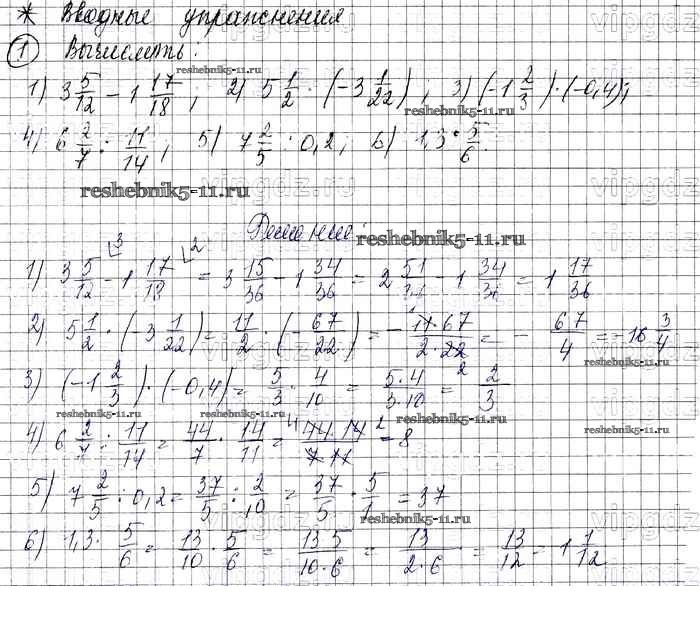 * Вводные упражнения
① Вычислить:
1) 3 5/12 - 1 17/18 ; 2) 5 1/2 · (-3 1/22) ; 3) (-1 2/3) · (-0,4);
4) 6 2/7 : 11/14 ; 5) 7 2/5 : 0,2; 6) 1,3 · 5/6
Решение
1) 3 5/12 - 1 17/18 = 3 15/36 - 1 34/36 = 2 51/36 - 1 34/36 = 1 17/36
2) 5 1/2 · (-3 1/22) = 11/2 · (-67/22) = - 11·67/2·22 = - 67/4 = -16 3/4
3) (-1 2/3) · (-0,4) = 5/3 · 4/10 = 5·4/3·10 = 2/3
4) 6 2/7 : 11/14 = 44/7 · 14/11 = 44·14/7·11 = 8
5) 7 2/5 : 0,2 = 37/5 : 2/10 = 37/5 · 5/1 = 37
6) 1,3 · 5/6 = 13/10 · 5/6 = 13 5/10·6 = 13/2·6 = 13/12 = 1 1/12
reshebnik5-11.ru
vipgdz.ru